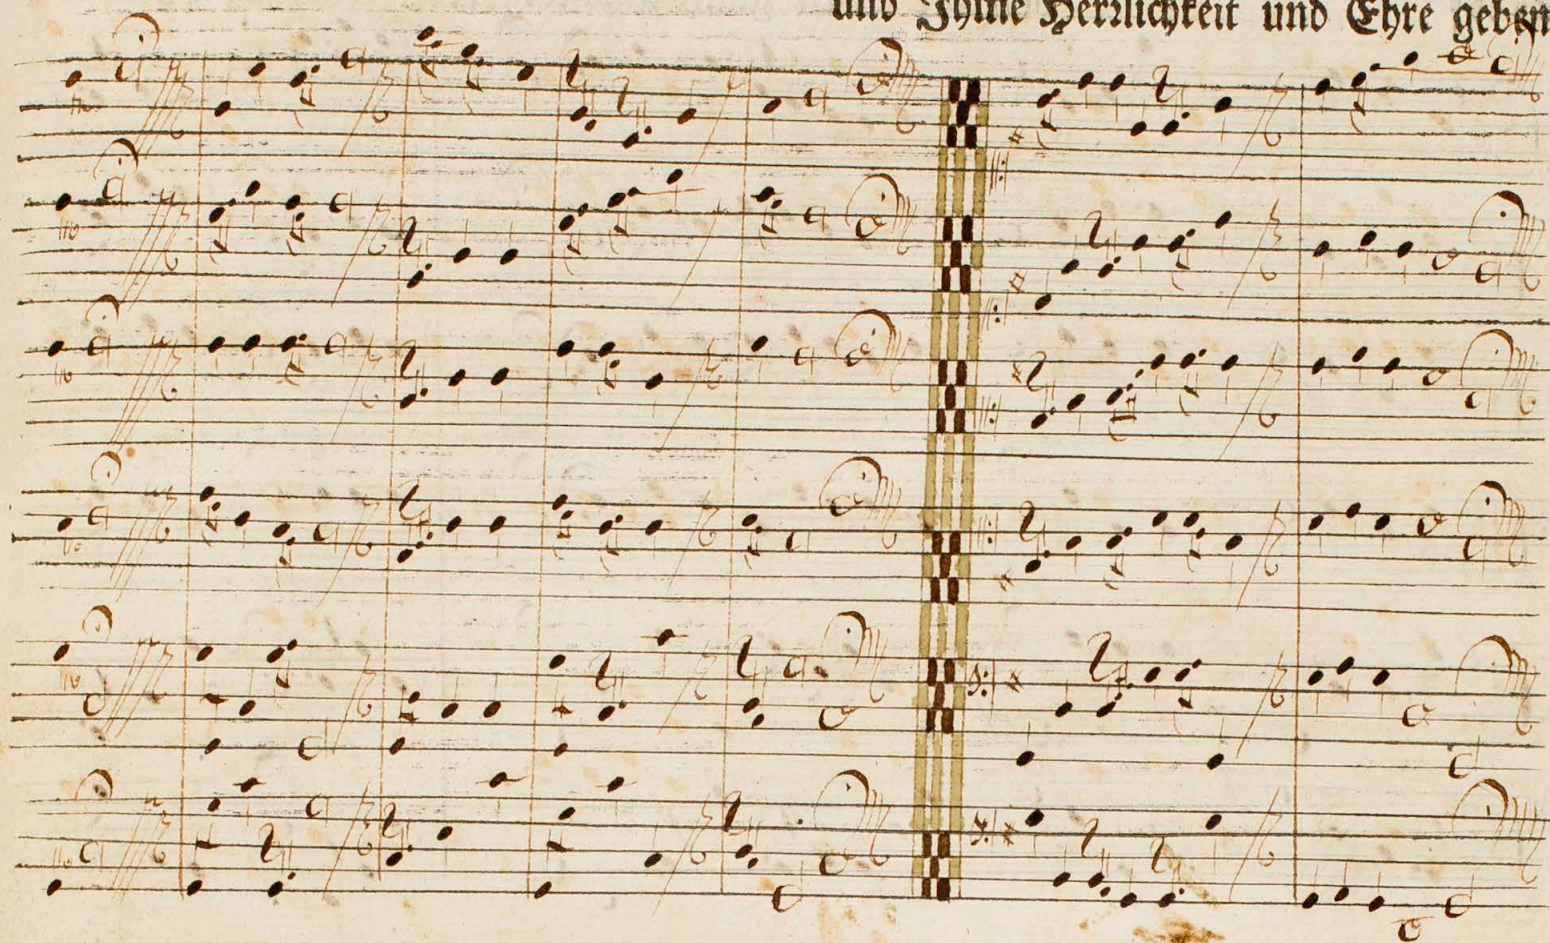 und Ihme Herrlichkeit und Ehre geben